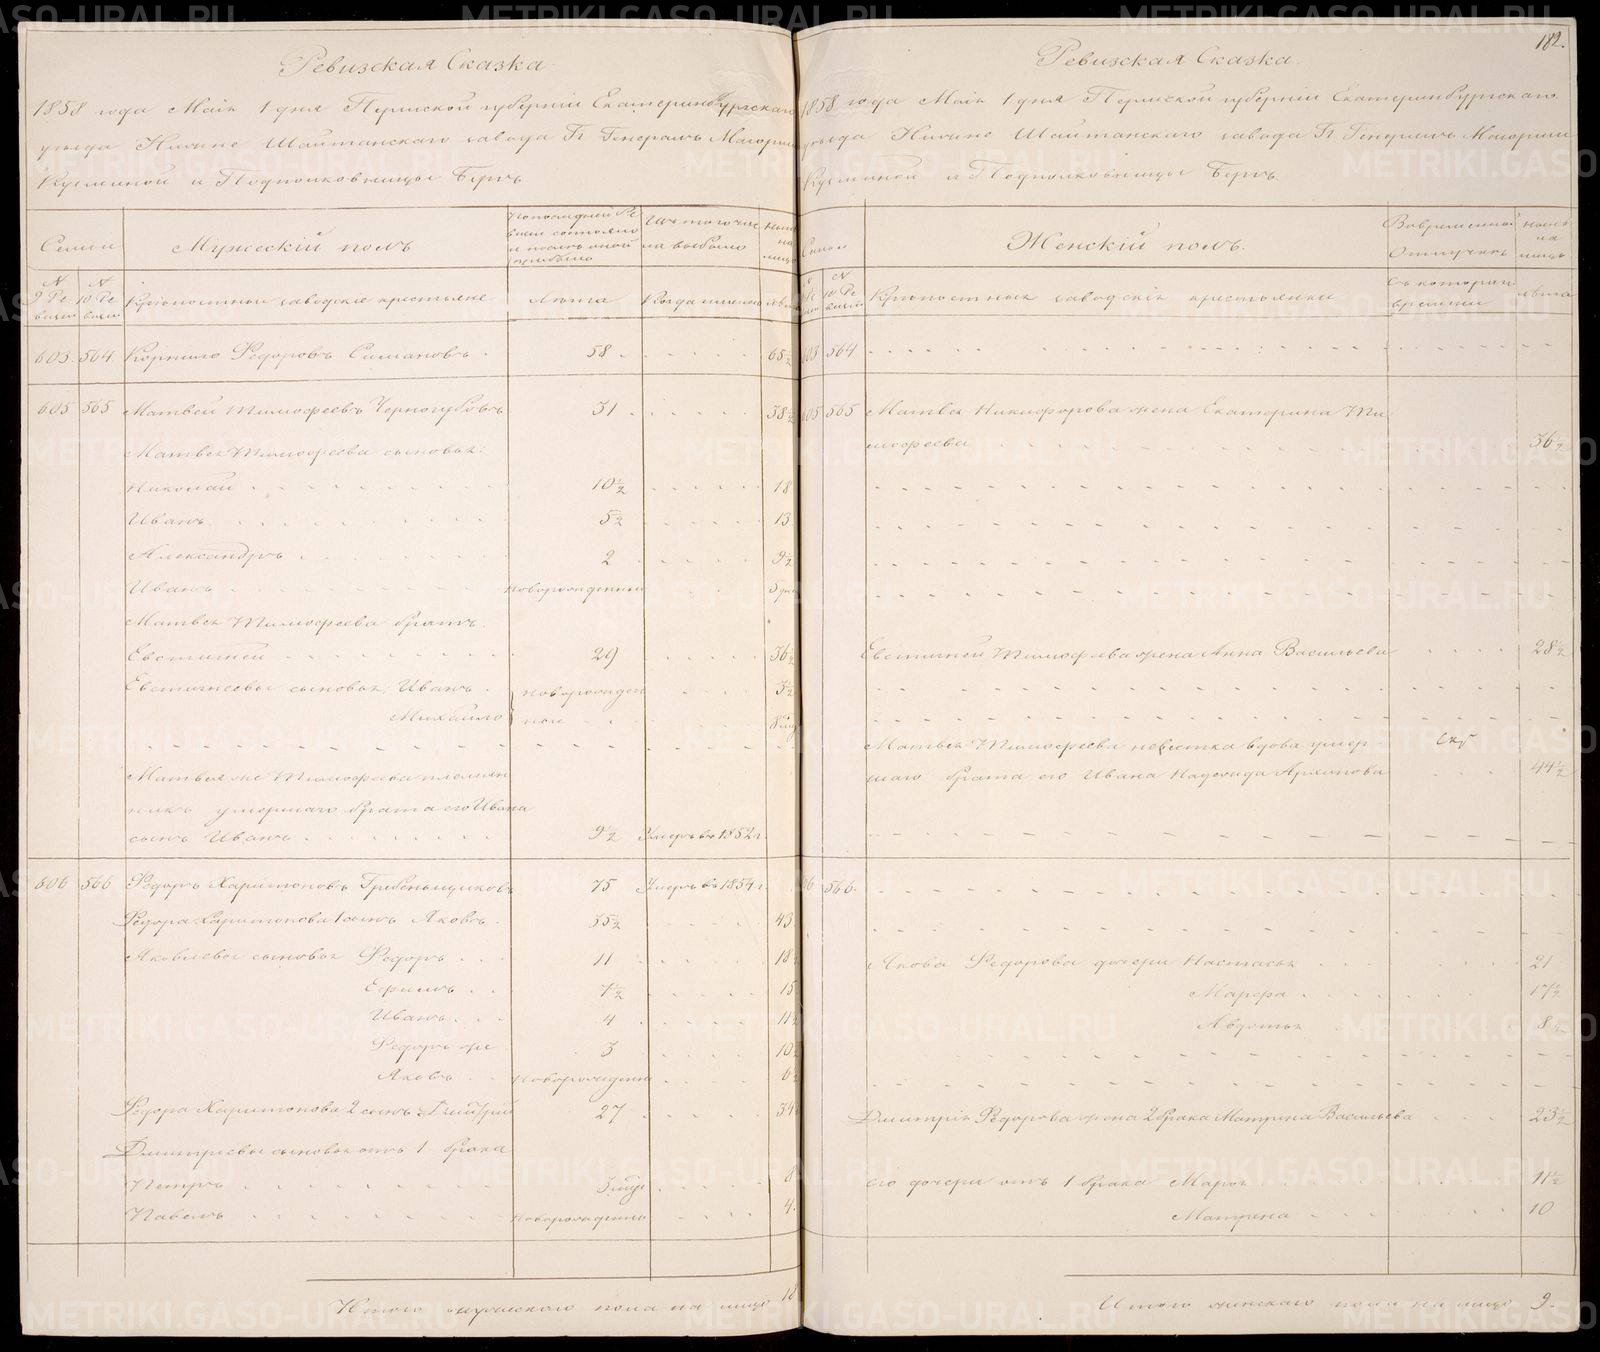 Ревизская Сказка
1858 года Маія 1 дня Пермской губерніи Екатеринбургскаго
уезда Нижне Шайтанскаго завода Гг Генералъ Маіорши
Кузьминой и Подполковницы Бергъ
Семьи
Мужескій полъ
По последней Ре
визіи состояло
и после оной
прибыло
Изъ того числа выбыло
Ныне
на
лицо
№
9 Ре
визіи
№
10 Ре
визіи
Крепостные заводскіе крестьяне
Лета
Когда именно
Лета
603. 564 Корнило Федоровъ Симановъ 58 65½
605 565 Матвей Тимофеевъ Черногубовъ 31 38½
Матвея Тимофеева сыновья:
Николай 10½ 18
Иванъ 5½ 13
Александръ 2 9½
Иванъ Новорожденный 5 дней
Матвея Тимофеева братъ
Евстигней 29 36½
Евстигнеевы сыновья: Иванъ новорожден 3½
Михайло ные 8
Матвея же Тимофеева племян
никъ умершаго брата его Ивана
сынъ Иванъ 9½ Умеръ въ 1852 г.
606 566 Федоръ Харитоновъ Гребеньщиковъ 75 Умеръ въ 1854 г.
Федора Харитонова 1 сынъ Яковъ 35½ 43
Яковлевы сыновья Федоръ 11 18½
Ефимъ 7½ 15
Иванъ 4 11½
Федоръ же 3 10½
Яковъ Новорожденный 6½
Федора Харитонова 2 сынъ Дмитрій 27 34½
Дмитріевы сыновья отъ 1 брака
Петръ 8
Павелъ Новорожденный 4
Итого мужескаго пола на лицо 18
182.
Ревизская Сказка
1858 года Маія 1 дня Пермской губерніи Екатеринбургскаго
уезда Нижне Шайтанскаго завода Гг Генералъ Маіорши
Кузьминой и Подполковницы Бергъ
Семьи
Женскій полъ.
Во временной
Отлучке
Ныне
на
лицо
№
10 Ре
визіи
Крепостныя заводскія крестьянки
Съ котораго
времени
Лета
603 564
605 565 Матвея Никифорова жена Екатерина Ти
мофеева 36½
Евстигнея Тимофеева жена Анна Васильева 28½
Матвея Тимофеева невестка вдова умер
шаго брата его Ивана Надежда Архипова 44½
606 566
Якова Федорова дочери Настасья 21
Марфа 17½
Авдотья 8½
Дмитрія Федорова жена 2 брака Матрена Васильева 23½
Его дочери отъ 1 брака Марья 11½
Матрена 10
Итого женскаго пола на лицо 9.
METRIKI.GASO-URAL.RU